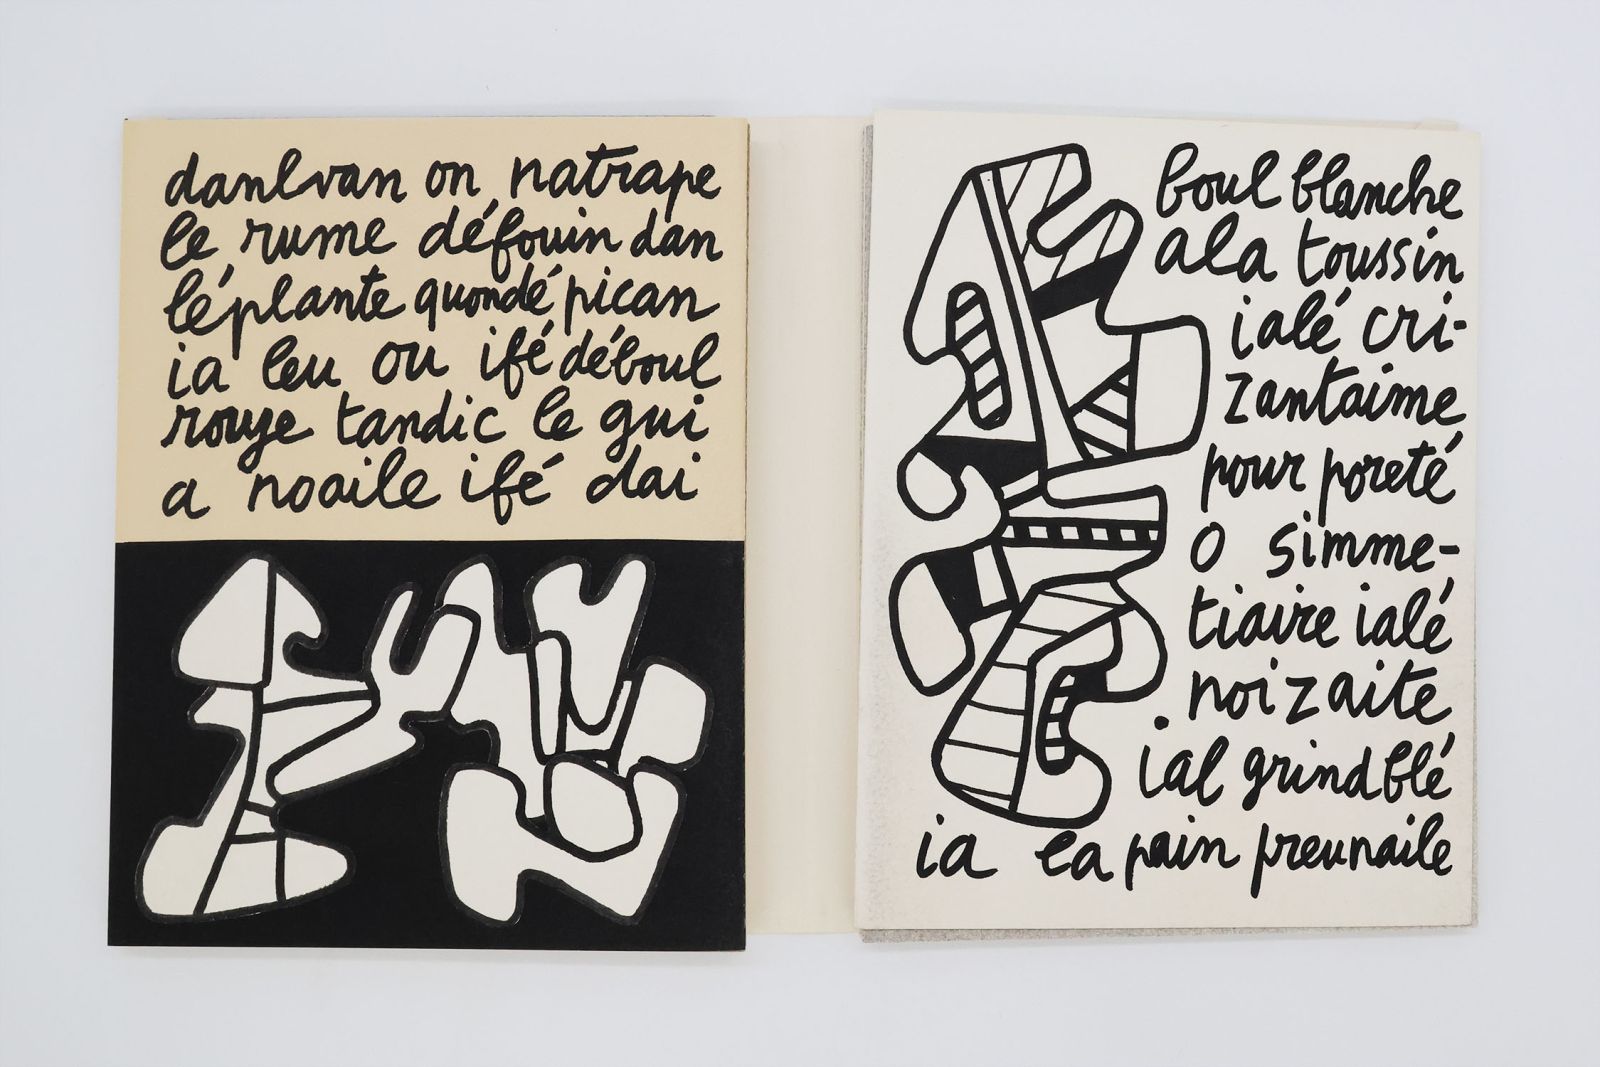 danlvan on natrape
le rume défouin dan
léplante quondé pican
ia leu ou ifé déboul
rouje tandic le gui
a noaile ifé dai
boul blanche
ala toussin
ialé cri-
zantaime
pour poreté
o simme-
tiaire ialé
noizaite
ial grindblé
ia ea pain preunaile